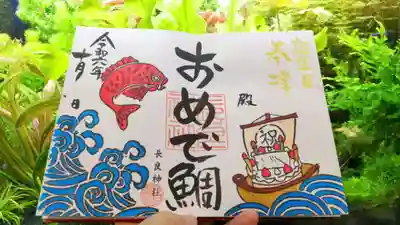 奉拝
殿
祝
おめで鯛
長良神社
令和六年
月
日